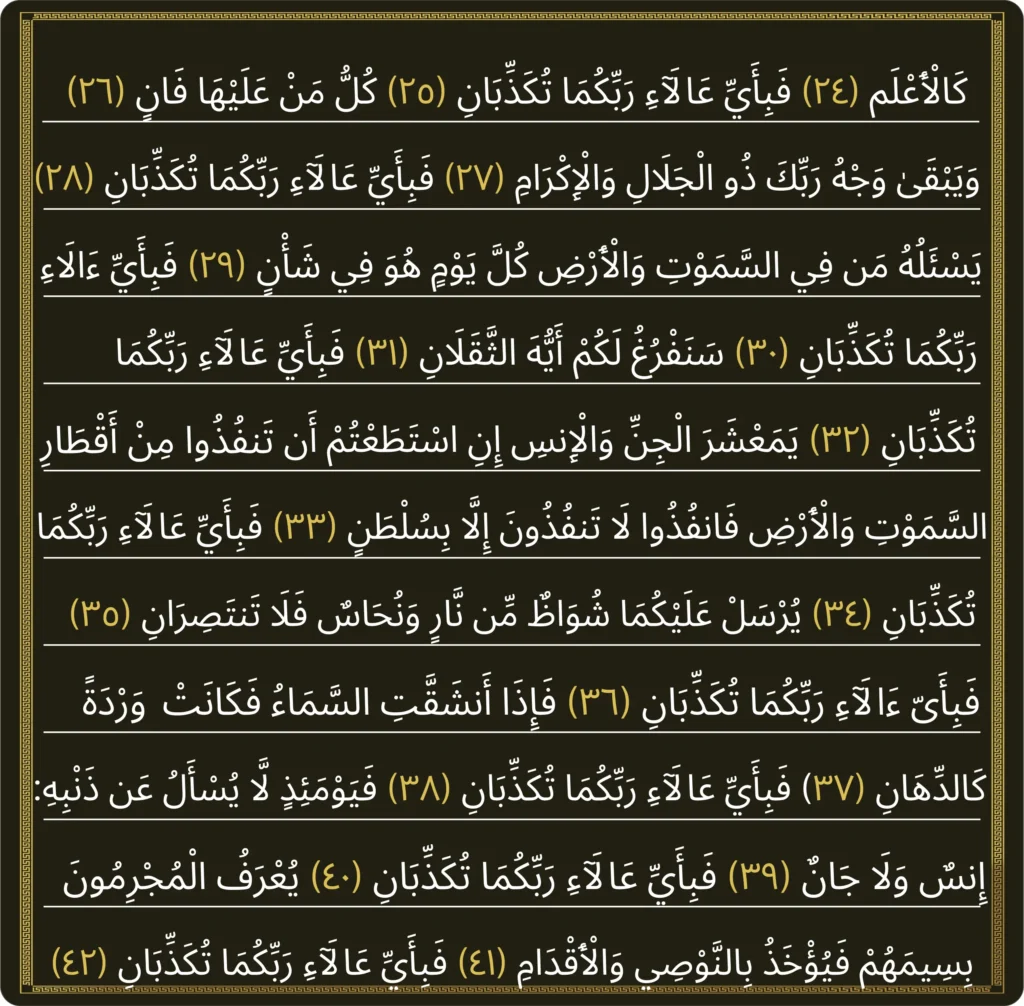 كَالْأَعْلَم (٢٤) فَبِأَيِّ عَالَآءِ رَبِّكُمَا تُكَذِّبَانِ (٢٥) كُلُّ مَنْ عَلَيْهَا فَانٍ (٢٦)
وَيَبْقَىٰ وَجْهُ رَبِّكَ ذُو الْجَلَالِ وَالْإِكْرَامِ (٢٧) فَبِأَيِّ عَالَآءِ رَبِّكُمَا تُكَذِّبَانِ (٢٨)
يَسْئَلُهُ مَن فِي السَّمَوْتِ وَالْأَرْضِ كُلَّ يَوْمٍ هُوَ فِي شَأْنٍ (٢٩) فَبِأَيِّ ءَالَاءِ
رَبِّكُمَا تُكَذِّبَانِ (٣٠) سَنَفْرُغُ لَكُمْ أَيُّهَ الثَّقَلَانِ (٣١) فَبِأَيِّ عَالَآءِ رَبِّكُمَا
تُكَذِّبَانِ (٣٢) يَمَعْشَرَ الْجِنِّ وَالْإِنسِ إِنِ اسْتَطَعْتُمْ أَن تَنفُذُوا مِنْ أَقْطَارِ
السَّمَوْتِ وَالْأَرْضِ فَانفُذُوا لَا تَنفُذُونَ إِلَّا بِسُلْطَنٍ (٣٣) فَبِأَيِّ عَالَآءِ رَبِّكُمَا
تُكَذِّبَانِ (٣٤) يُرْسَلْ عَلَيْكُمَا شُوَاظٌ مِّن نَّارٍ وَنُحَاسٌ فَلَا تَنتَصِرَانِ (٣٥)
فَبِأَىّ ءَالَآءِ رَبِّكُمَا تُكَذِّبَانِ (٣٦) فَإِذَا أَنشَقَّتِ السَّمَاءُ فَكَانَتْ وَرْدَةً
كَالدِّهَانِ (٣٧) فَبِأَيِّ عَالَآءِ رَبِّكُمَا تُكَذِّبَانِ (٣٨) فَيَوْمَئِذٍ لَّا يُسْأَلُ عَن ذَنْبِهِ:
إِنسٌ وَلَا جَانٌ (٣٩) فَبِأَيِّ عَالَآءِ رَبِّكُمَا تُكَذِّبَانِ (٤٠) يُعْرَفُ الْمُجْرِمُونَ
بِسِيمَهُمْ فَيُؤْخَذُ بِالنَّوْصِي وَالْأَقْدَامِ (٤١) فَبِأَيِّ عَالَآءِ رَبِّكُمَا تُكَذِّبَانِ (٤٢)